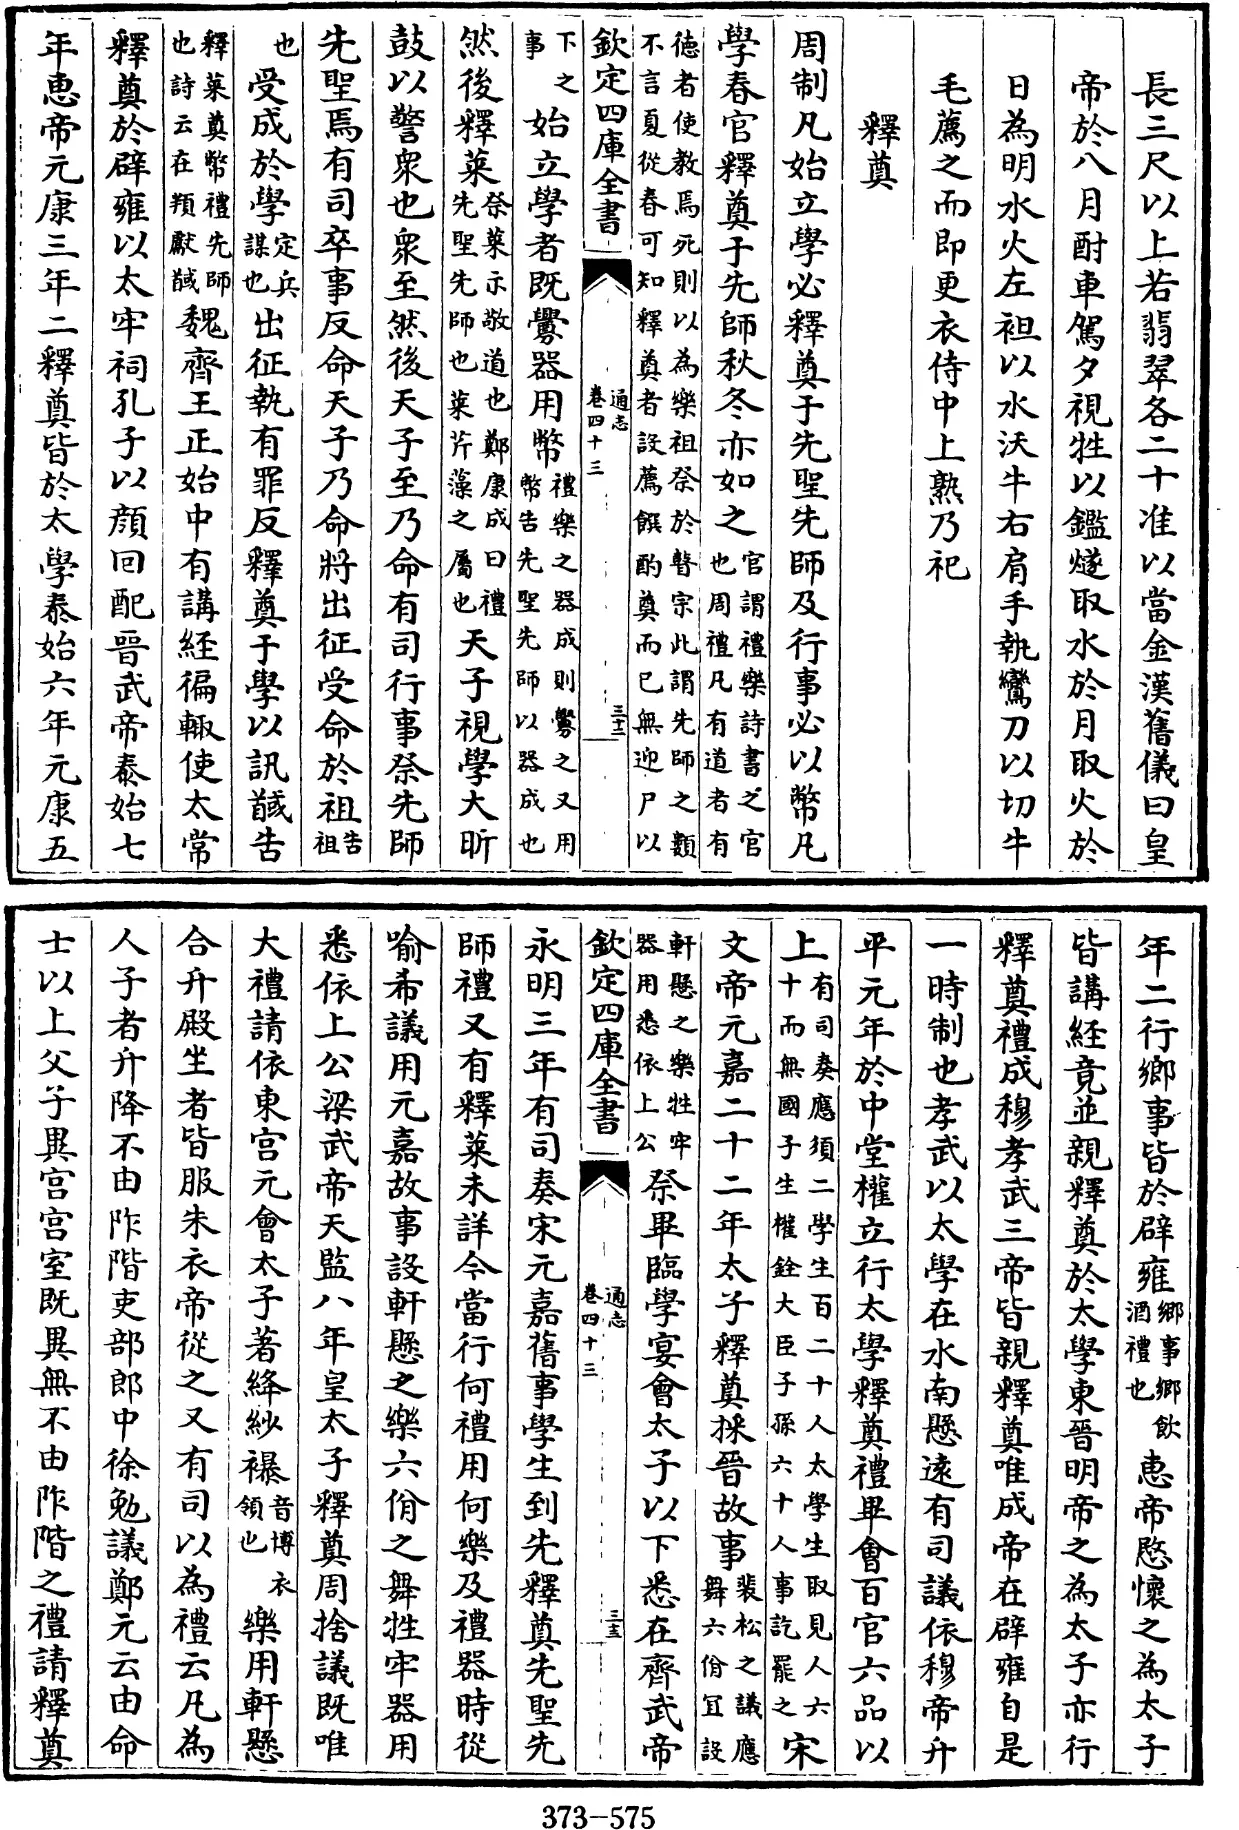 長三尺以上若翡翠各二十准以當金漢舊儀曰皇
帝於八月酎車駕夕視牲以鑑燧取水於月取火於
日為明水火左袒以水沃牛右肩手執鸞刀以切牛
毛薦之而即更衣侍中上熟乃祀
釋奠
周制凡始立學必釋奠于先聖先師及行事必以幣凡
學春官釋奠于先師秋冬亦如之官謂禮樂詩書之官也周禮凡有道者有
德者使教焉死則以為樂祖祭於瞽宗此謂先師之類不言夏從春可知釋奠者設薦饌酌奠而已無迎尸以
欽定四庫全書 通志卷四十三 三十二
下之事始立學者既釁器用幣禮樂之器成則釁之又用幣告先聖先師以器成也
然後釋菜祭菜示敬道也鄭康成曰禮先聖先師也菜芹藻之屬也天子視學大昕
鼓以警衆也衆至然後天子至乃命有司行事祭先師
先聖焉有司卒事反命天子乃命將出征受命於祖告祖
也受成於學定兵謀也出征執有罪反釋奠于學以訊馘告
釋菜奠幣禮先師也詩云在頖獻馘魏齊王正始中有講經徧輙使太常
釋奠於辟雍以太牢祠孔子以顔回配晉武帝泰始七
年惠帝元康三年二釋奠皆於太學泰始六年元康五
年二行鄉事皆於辟雍鄉事鄉飲酒禮也惠帝愍懷之為太子
皆講經竟並親釋奠於太學東晉明帝之為太子亦行
釋奠禮成穆孝武三帝皆親釋奠唯成帝在辟雍自是
一時制也孝武以太學在水南懸逺有司議依穆帝升
平元年於中堂權立行太學釋奠禮畢會百官六品以
上有司奏應須二學生百二十人太學生取見人六十而無國子生權銓大臣子孫六十人事訖罷之宋
文帝元嘉二十二年太子釋奠採晉故事裴松之議應舞六佾宜設
軒懸之樂牲牢器用悉依上公祭畢臨學宴會太子以下悉在齊武帝
欽定四庫全書 通志卷四十三 三十三
永明三年有司奏宋元嘉舊事學生到先釋奠先聖先
師禮又有釋菜未詳今當行何禮用何樂及禮器時從
喻希議用元嘉故事設軒懸之樂六佾之舞牲牢器用
悉依上公梁武帝天監八年皇太子釋奠周捨議既唯
大禮請依東宮元會太子著絳紗襮音博衣領也樂用軒懸
合升殿坐者皆服朱衣帝從之又有司以為禮云凡為
人子者升降不由阼階吏部郎中徐勉議鄭元云由命
士以上父子異宮宮室既異無不由阼階之禮請釋奠
373-575